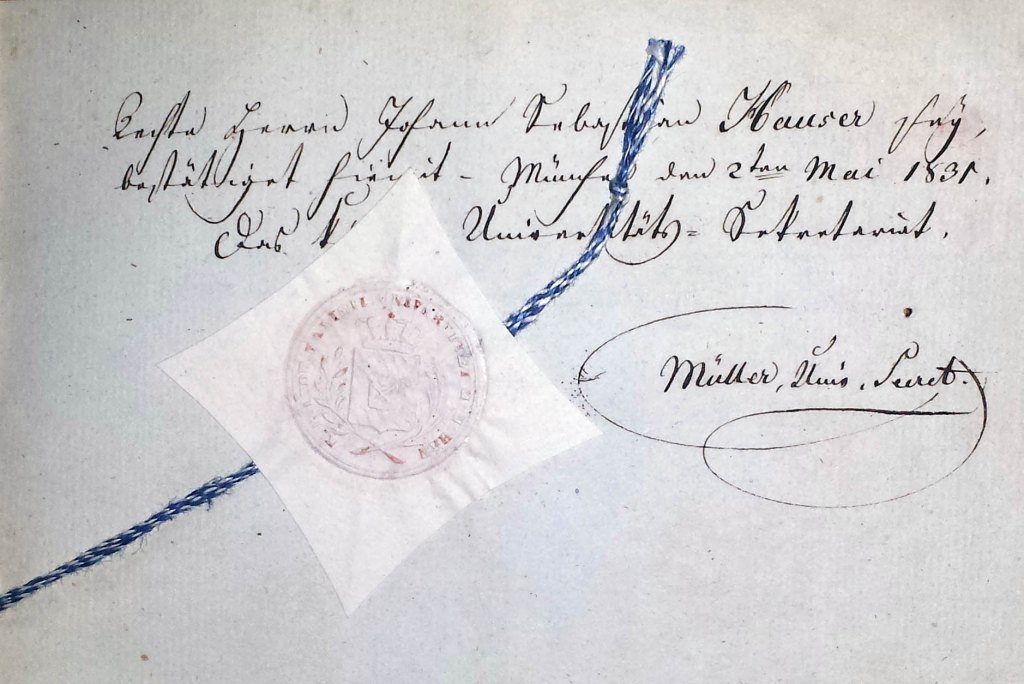 Rechte Herrn Johann Sebastian Hauser sey,
bestättiget hiemit - München den 2ten Mai 1831.
Das Universitäts= Sekretariat.
Müller, Univ. Secret.